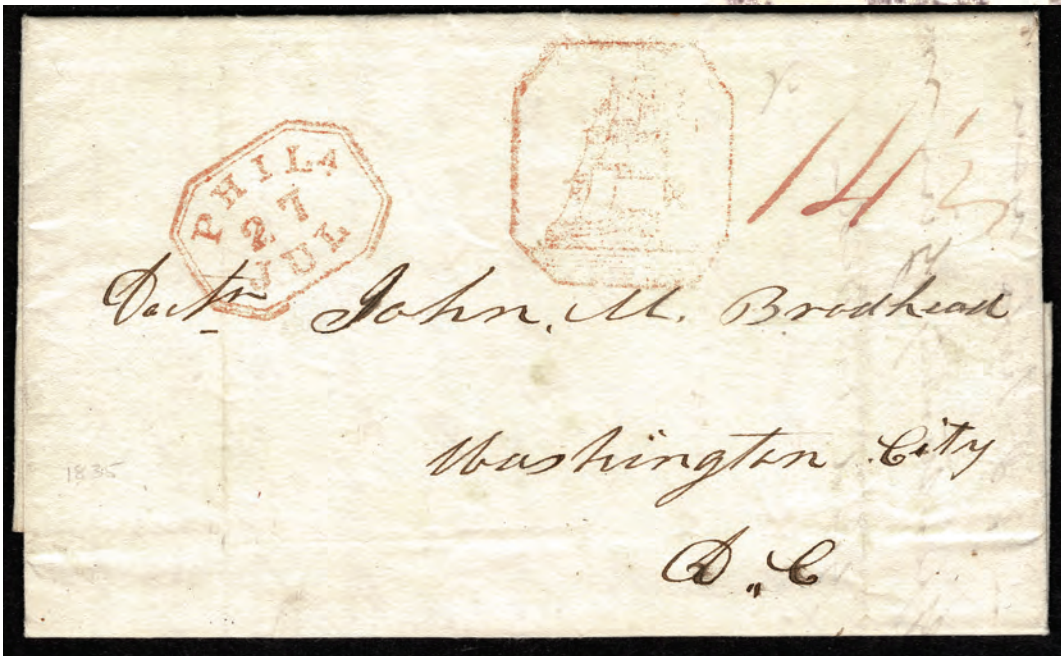 PHILA
27
JUL
14½
Doctr John, M. Brodhead
Washington City
D. C
1835